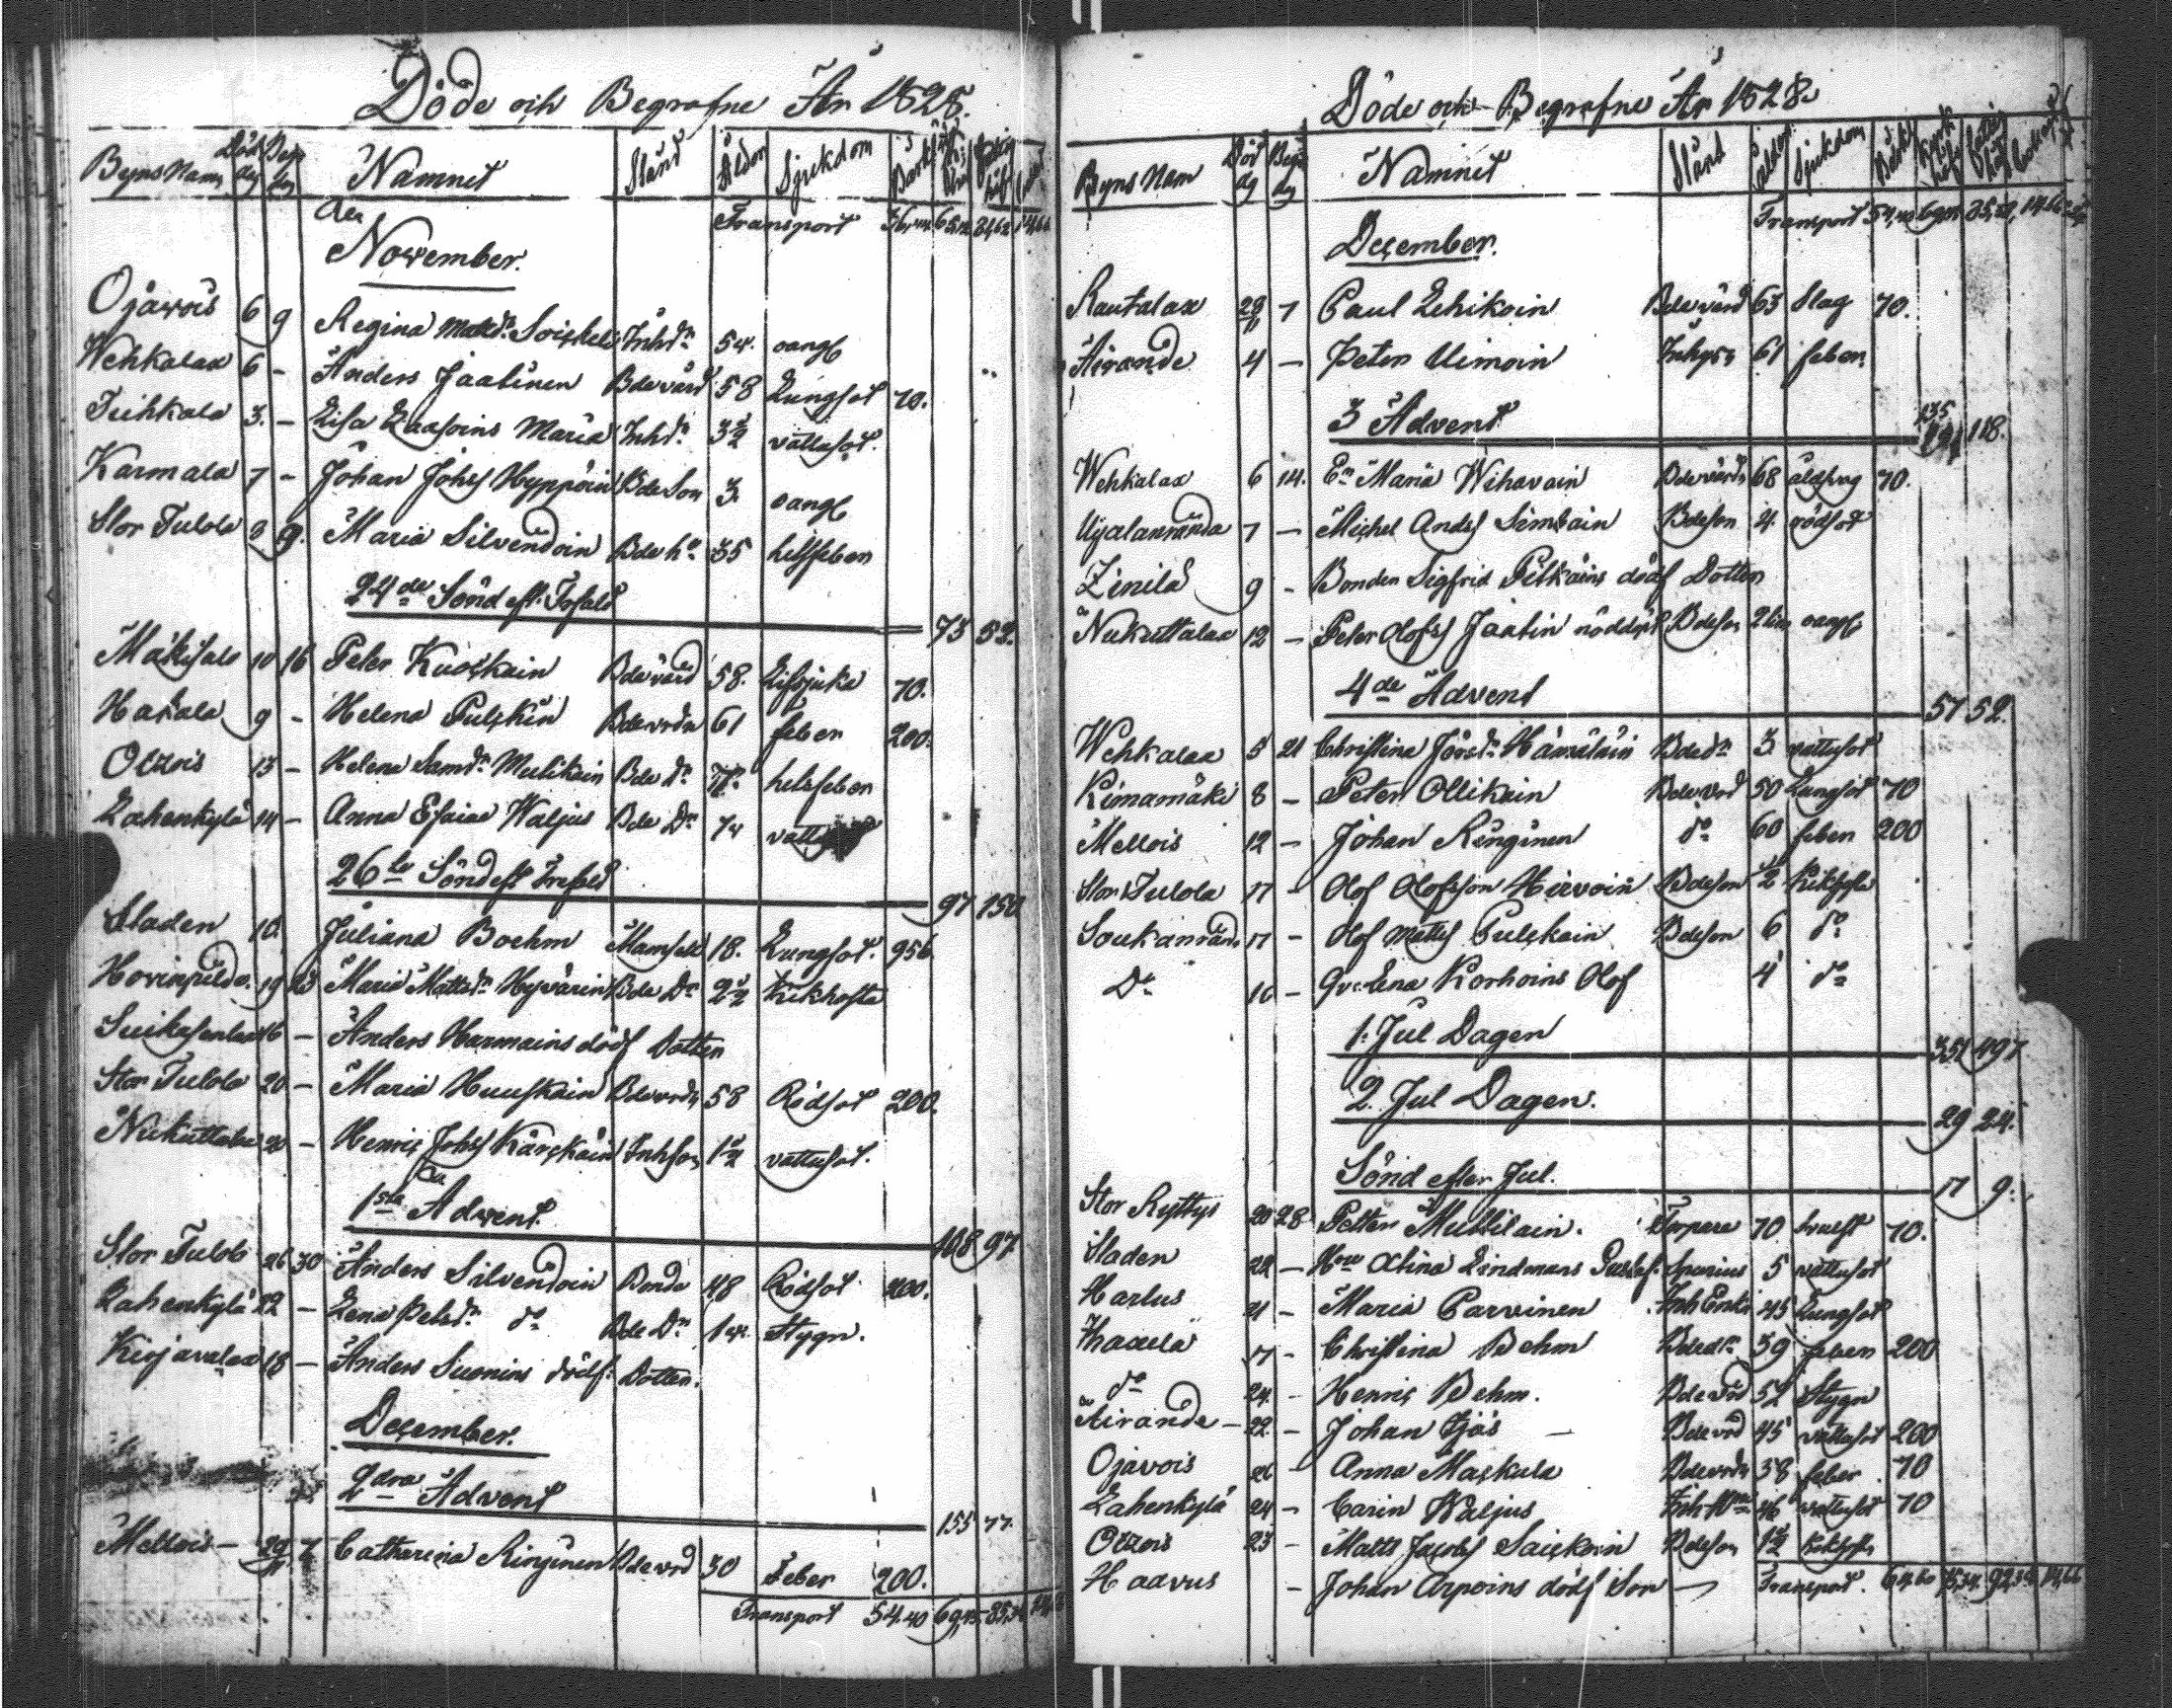 Döde och Begrafne År 1828.
Byns Namn Död dag Beg dag Namnet Stånd Ålder Sjukdom
Transport
November.
Ojavois 6 9 Regina Matsd:r Inhd:r 54. oangf
Wehkalax 6 - Anders Jaatinen Bdevärd 58 Lungsot 70.
Tuihkala 3. - Lisa Laasoins Maria Inhd:r 3½ vattusot.
Karmala 7 - Johan Johs Hyppöin Bde Son 3. oangf
Stor Tulola 8 9. Maria Silvendoin Bde h:u 35 hetsfeber
24de Sönd eft. Trefald 73 52.
Mäkisalo 10 16 Peter Kuockain Bdevärd 58. 70.
Haxala 9 - Helena Pulckin Bdevrda 61 feber 200.
Otzois 13 - Helena Samd:r Mulikain Bde d:r hetsfeber
Lahenkylä 14 - Anna Esaiae Waljus Bde D:r
26te Sönd eft Trefald 97 150
Staden 10. Juliana Boehm Mamsell 18. Lungsot. 956
19 23 Maria Mattsd:r Hyvärin Bde D:r 2½ Kikhosta
16 - Anders Harmains dödf Dotter
Stor Tulola 20 - Maria Huuskain Bdevrda 58 Rödsot 200.
Nukuttalax 20 - Henric Johs Kärckäin Inhson 1½ vattusot.
1sta Advent 108 97
Stor Tulola 26 30 Anders Silvendoin Bonde 48 Rödsot 200.
Lahenkylä 22 - Lena Petsd:r d:o Bde D:r Stygn.
Kirjavalax 18 - Anders Suonins dödf. Dotter.
December.
2dra Advent 155 77.
Mellois - 29/11 7 Catharina Ringinen Bdevrd 30 Feber 200.
Transport 54.40
Döde och Begrafne År 1828.
Byns Nam Död dg Begr dg Namnet Stånd ålder Sjukdom
Transport 54,40
December.
Rautalax 28/11 7 Paul Lehikoin Bdevärd 63 Slag 70.
Airande 4 - Peter Uimoin Inhys 61 feber.
3 Advent 118.
Wehkalax 6 14. E:n Maria Wihavain Bdevärda 68 70.
7 - Michel Anders Simbain Bdeson 4. rödsot
9 - Bonden Sigfrid Pitkäins dödf Dotter
Nukuttalax 12 - Peter Olofs Jaatin nöddöpt Bdeson oangf
4de Advent 51 52.
Wehkalax 5 21 Christina Hämäläin Bded:r 3 vattusot
Kimamäki 8 - Peter Ollikain Bdevrd 50 Lungsot 70
Mellois 12 - Johan Ringinen d:o 60 feber 200
Stor Tulola 17 - Olof Olofsson Hirvoin Bdeson ½
17 - Olof Matts Pulckain Bdeson 6 d:o
D:o 16 - Korhoins Olof 4 d:o
1. Jul Dagen 351 497
2. Jul Dagen. 29 24.
Sönd efter Jul. 17 9.
Stor Ryttys 20 28 Petter Muttilain. Torpare 70 70.
Staden 22 - Lindmans Spurius 5 vattusot
Harlus 21 - Maria Parvinen 45 Lungsot
17 - Christina Behm Bded:r 39 feber 200
d:o 24 - Henric Behm. Bdevrd 52 Stygn
Airande - 22 - Johan Bdevrd 45 vattusot 200
Ojavois 26 - Anna Mackula Bdevrda 38 feber 70
Lahenkylä 24 - Carin Waljus 46 vattusot 70
Otzois 23 - Matts Jacobs Saickoin Bdeson 1½
Haavus - Johan Arpoins dödf Son - Transport.